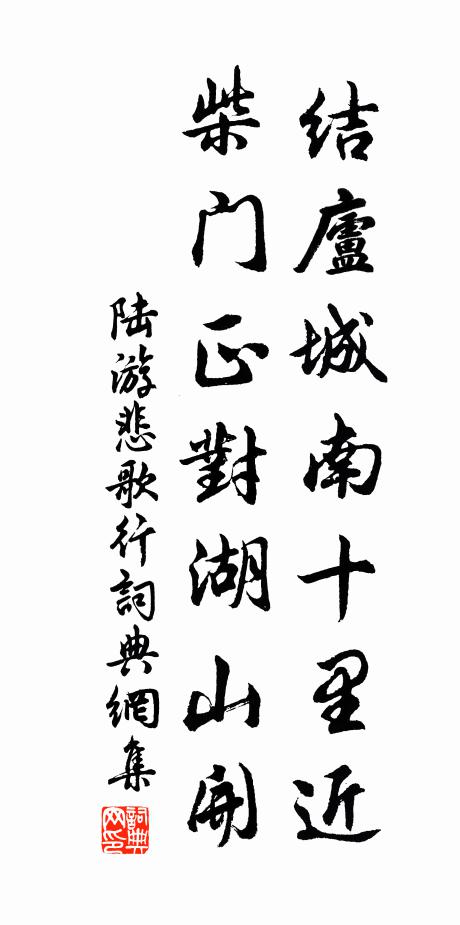 结廬城南十里近
柴门正對湖山開
陆游悲歌行詞典網集
詞典网印